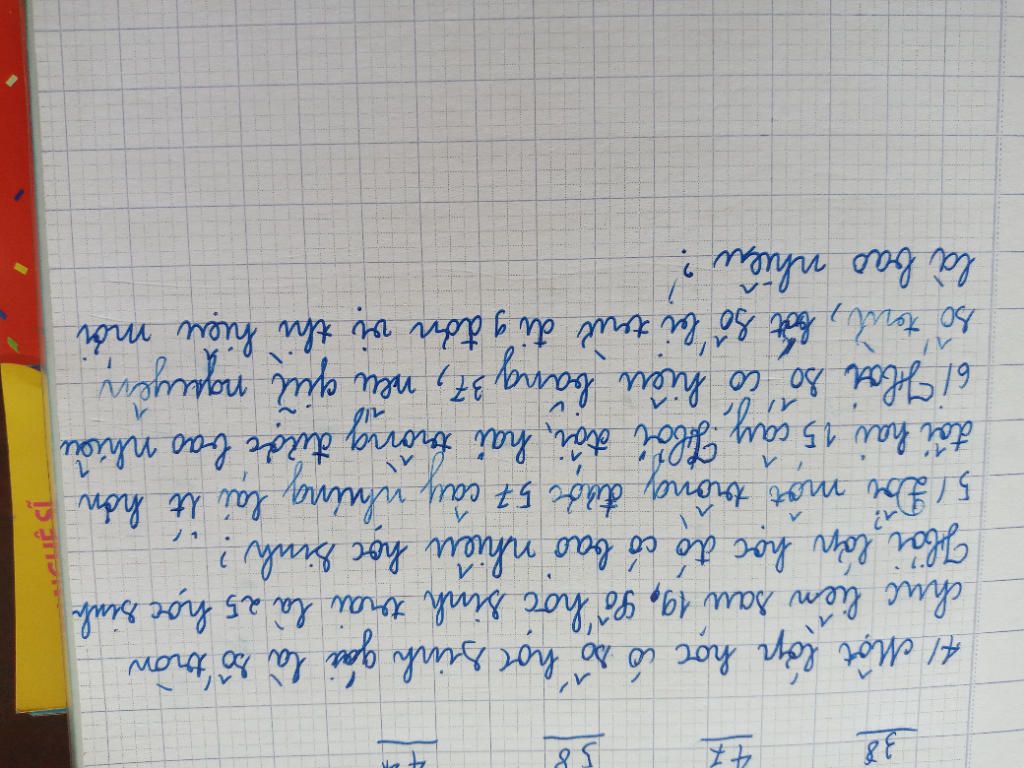 38 47 58
4/ Một lớp học có số học sinh gái là số tròn
chục liền sau 19, số học sinh trai là 25 học sinh
Hỏi lớp học đó có bao nhiêu học sinh?
5/ Đội một trồng được 57 cây nhưng lại ít hơn
đội hai 15 cây, Hỏi đội hai trồng được bao nhiêu
6/ Hai số có hiệu bằng 37, nếu giữ nguyên
số trừ, bớt số bị trừ đi 9 đơn vị thì hiệu mới
là bao nhiêu?
NGHỆ SĨ